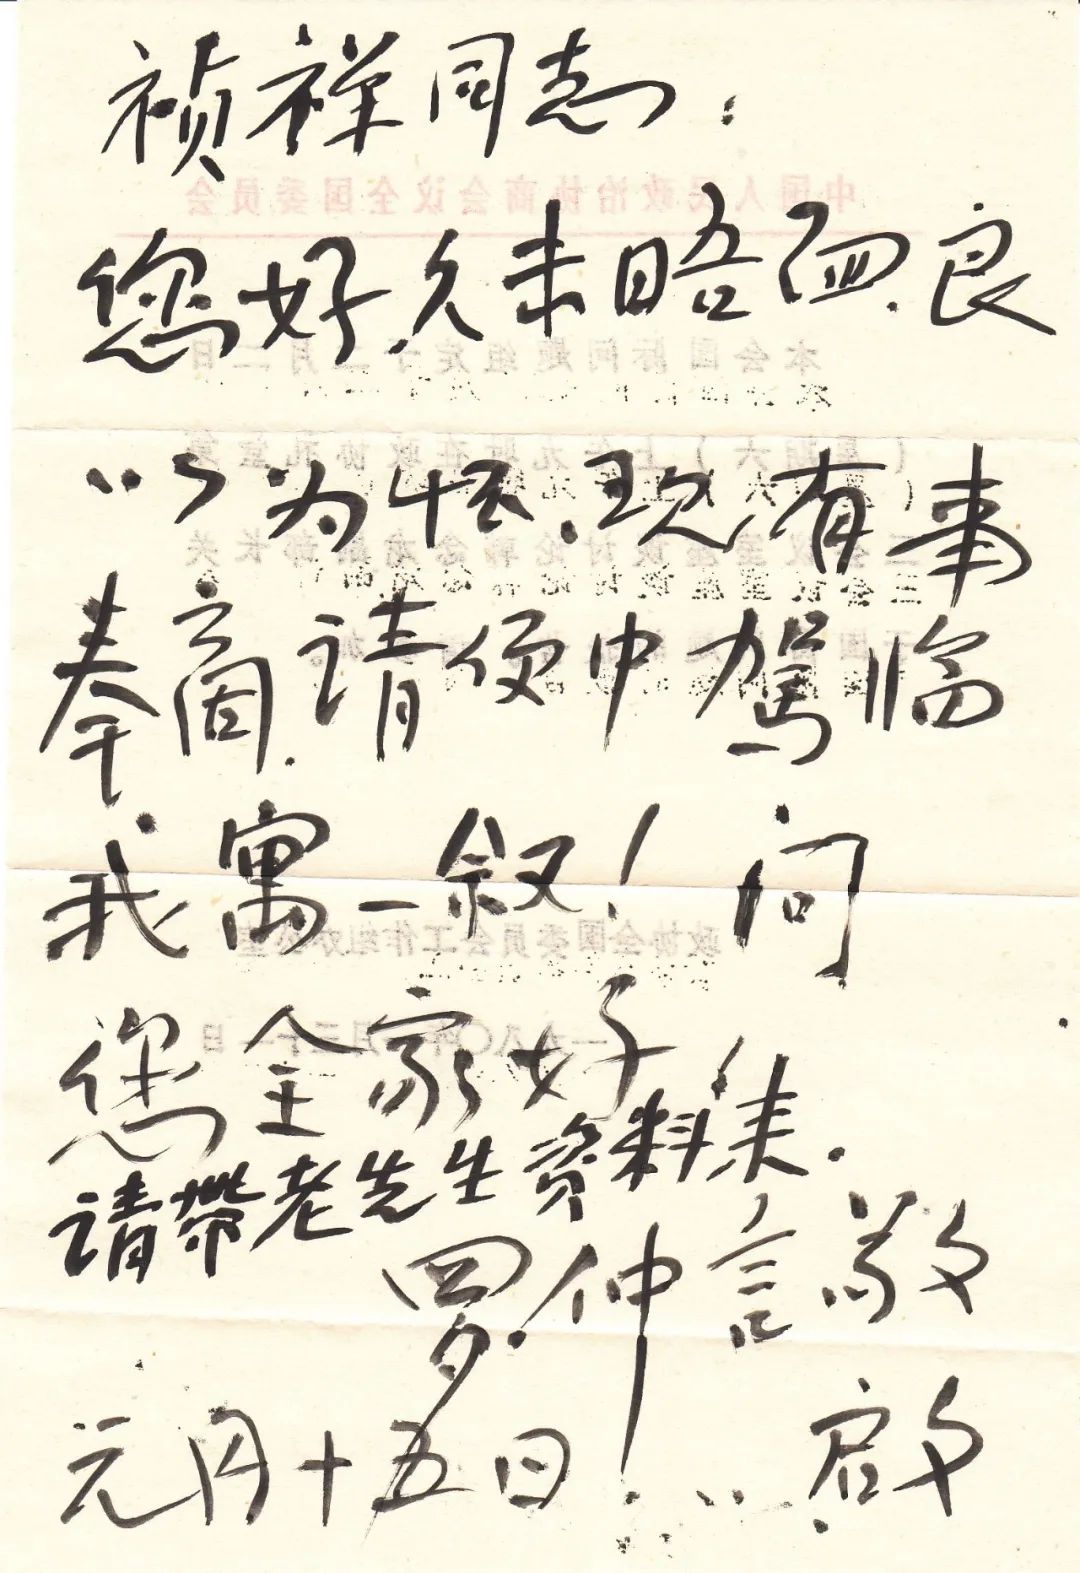 祯祥同志：
您好.久未晤面.良
以为怀.现有事
奉商.请便中驾临
我寓一叙！问
您全家好
请帶老先生资料来.
罗仲言敬
元月十五日 啟